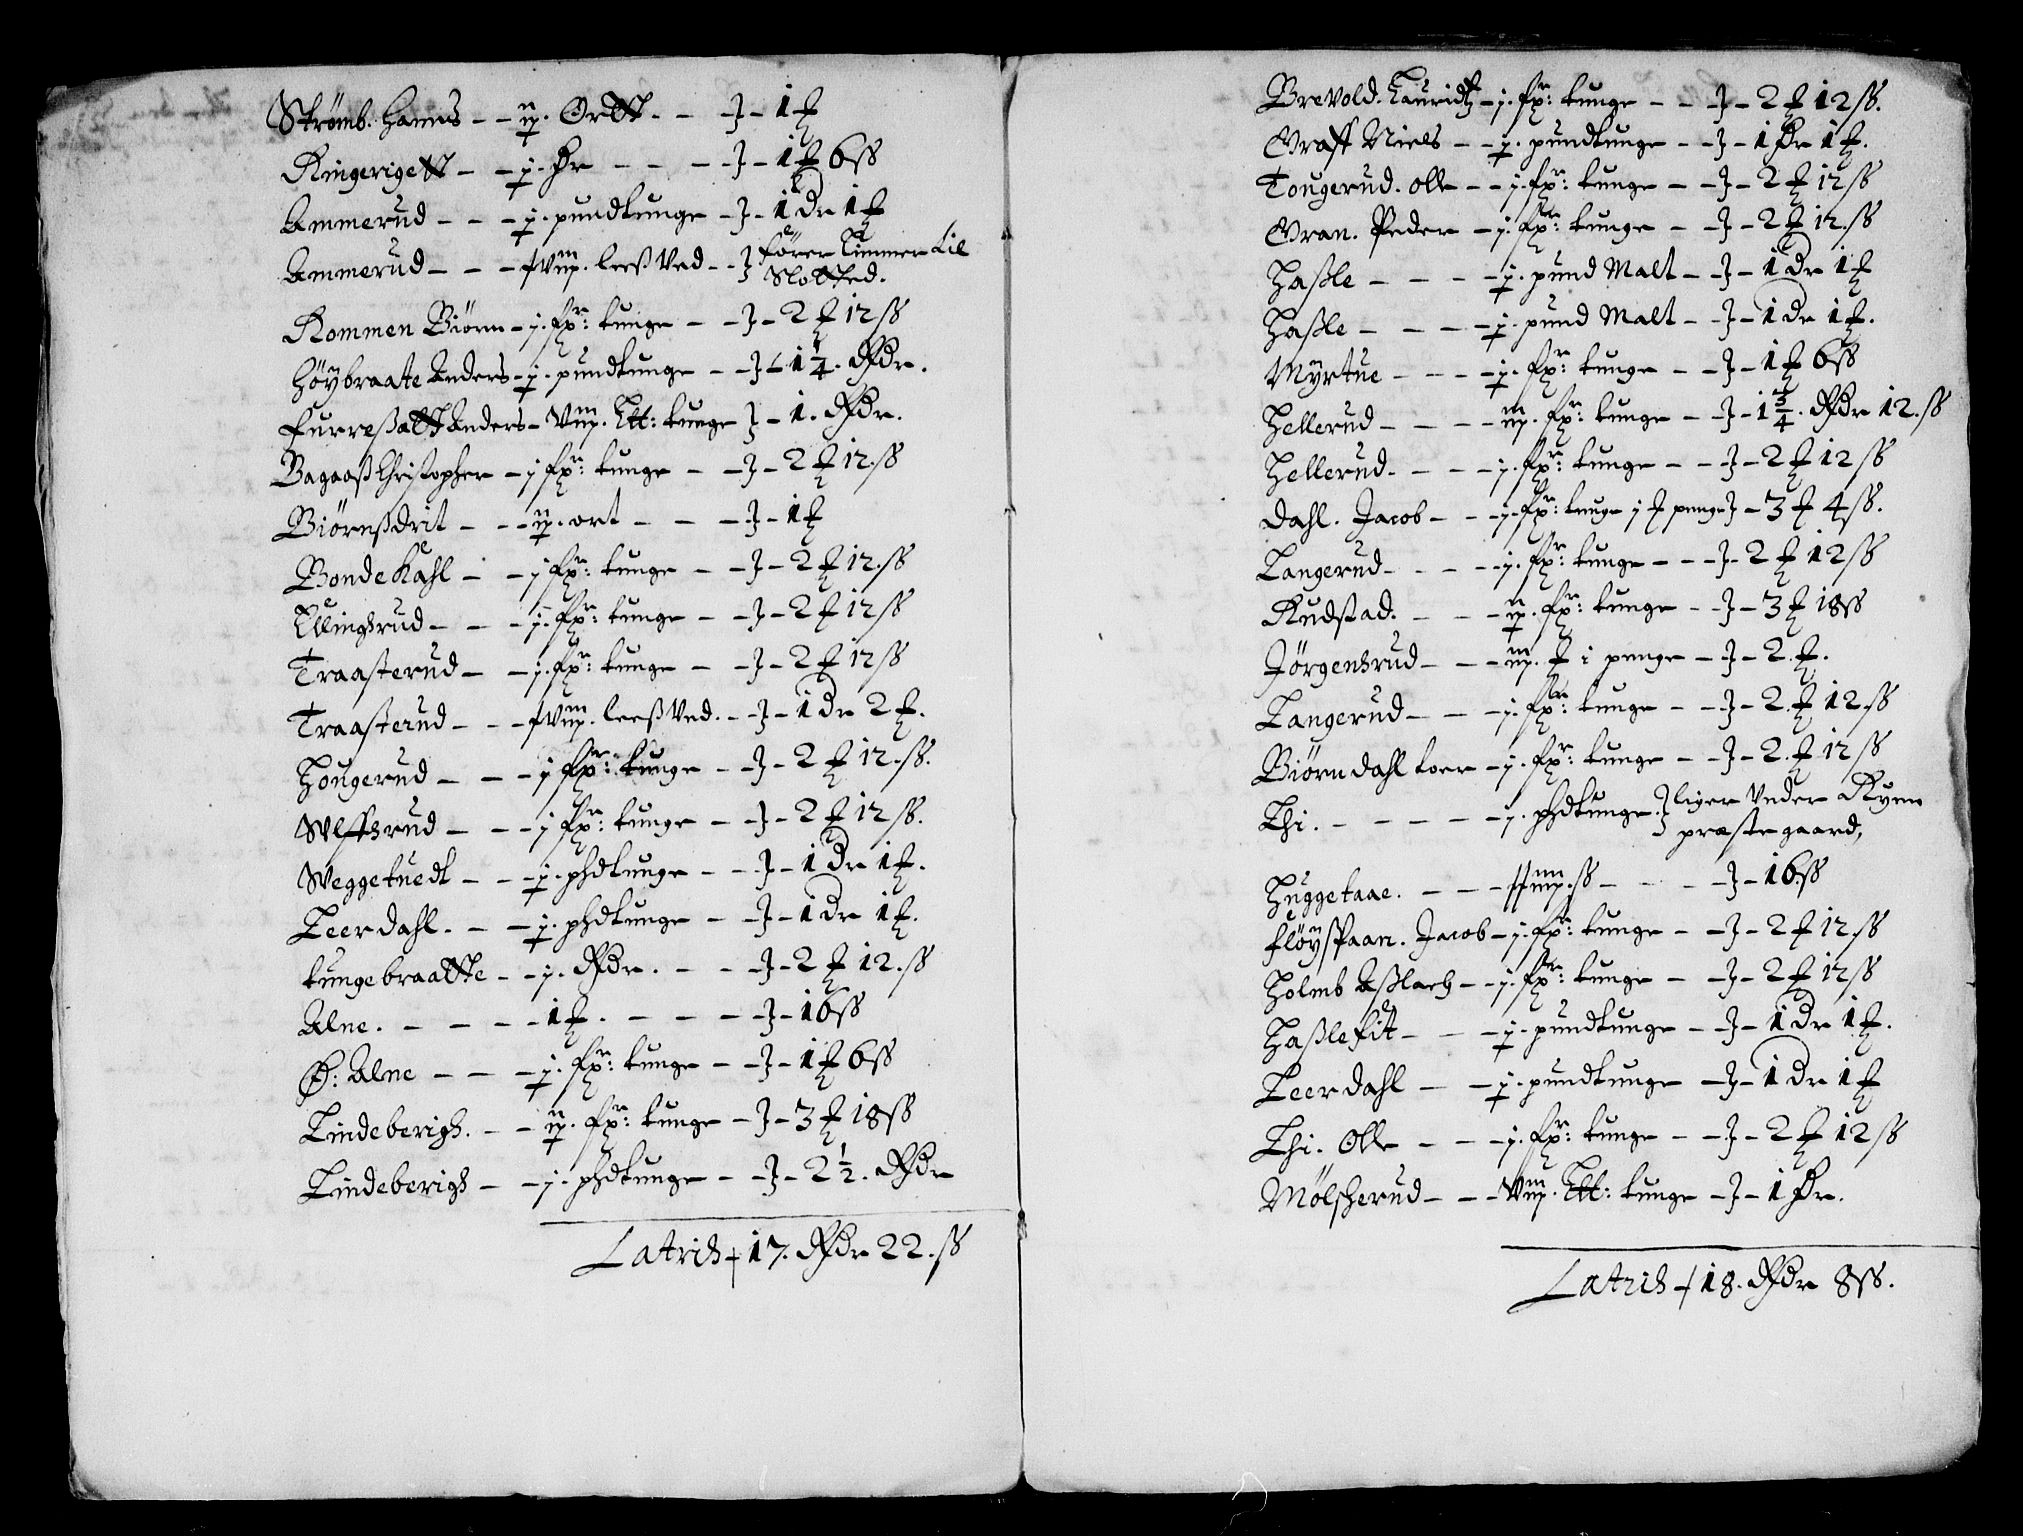 Strømb. Hanns - - ij. Ortt. - - } - 1 ℔
Ringeigett - - j. Dr - - - } - 1 ℔ 6 ss
Ammerud - - - j. pundtunge - } - 1 Dr 1 ℔
Ammerud - - - Viij. lees Ved - - } fører Timmer til
Slotted.
Rommen Biørn - j. fr: tunge - - } - 2 ℔ 12 ss
Høybraate Anders - j. pundtunge - } - 1 1/4. Rdr.
Furresætt Anders - Viij. Ltt: tunge } - 1. Rdr.
Bagaas Christopher - j fr: tunge - - } - 2 ℔ 12. ss
Biørnsdrit - - - ij. ort - - - } - 1 ℔
Bonde Kahl - - j fr: tunge - - } - 2 ℔ 12. ss
Ellingsrud - - - j. fr: tunge - - } - 2 ℔ 12 ss
Traasterud - - j. fr: tunge - - } - 2 ℔ 12 ss
Traasterud - - - Viij. lees Ved. - } - 1 Dr 2 ℔.
Hougerud - - - j fr: tunge - - } - 2 ℔ 12. ss.
Wlffsrud - - - j fr: tunge - } - 2 ℔ 12 ss.
Weggetuedt - - - j. phdtunge - - } - 1 Dr 1 ℔.
Leerdahl. - - j. phdtunge - - } - 1 Dr 1 ℔.
tungebraatte - - j. Rdr. - - - } - 2 ℔ 12. ss
Alne. - - - - 1 ℔. - - - - } - 16 ss
Ø: Alne - - - j. fr: tunge - - } - 1 ℔ 6 ss
Lindeberigh. - - ij. fr: tunge - } - 3 ℔ 18 ss
Lindeberigh - - j. phdtunge - - } - 2 1/2. Rdr
Latris + 17. Rdr 22. ss
Brevold. Lauridtz - j. fr: tunge - - } - 2 ℔ 12 ss.
Graff Niels - - j. pundtunge - - } - 1 Dr 1 ℔.
Tougerud. Olle - - j. fr: tunge - - } - 2 ℔ 12 ss
Gran. Peder - j. fr: tunge - - } - 2 ℔ 12. ss
Hasle - - - - j. pund Malt - } - 1 Dr 1 ℔
Hasle - - - - j. pund Malt - } - 1 Dr 1 ℔.
Myrtue - - - - j. fr: tunge - - } - 1 ℔ 6 ss
Hellerud - - - - iij. fr: tunge - } - 1 3/4. Rdr 12. ss
Hellerud. - - - j. fr: tunge - - } - 2 ℔ 12 ss
Dahl. Jacob - - j. fr: tunge j ℔ penge } - 3 ℔ 4 ss.
Langerud - - - - j. fr: tunge - - - } - 2 ℔ 12 ss
Rudstad. - - - ij. fr: tunge - - } - 3 ℔ 18 ss
Jørgensrud - - - iij. ℔ i penge - } - 2. ℔.
Langerud - - - j. fr: tunge - - } - 2. ℔ 12. ss
Biørndahl toer - j. fr: tunge - - } - 2. ℔ 12 ss
Thi. - - - - - j. phdtunge. } liger Under Rynn
præstegaard,
Huggetaae. - - - iiij. ss - - - - } - 16. ss
Fløyspaan. Jacob - j. fr: tunge - - } - 2 ℔ 12. ss
Holmb Aslach - - j. fr: tunge - - } - 2 ℔ 12 ss
Haslefit - - - j. pundtunge - } - 1 Dr 1 ℔.
Leerdahl - - j. pundtunge - } - 1 Dr 1 ℔
Thi. Olle - - - j. fr: tunge - - } - 2 ℔ 12 ss
Mølscherud - - - Viij. Ltt: tunge - } - 1 Dr.
Latris + 18. Rdr 8 ss.